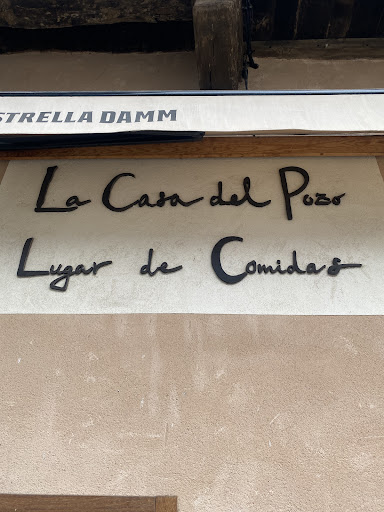 STRELLA DAMM
La Casa del Pozo
Lugar de Comidas